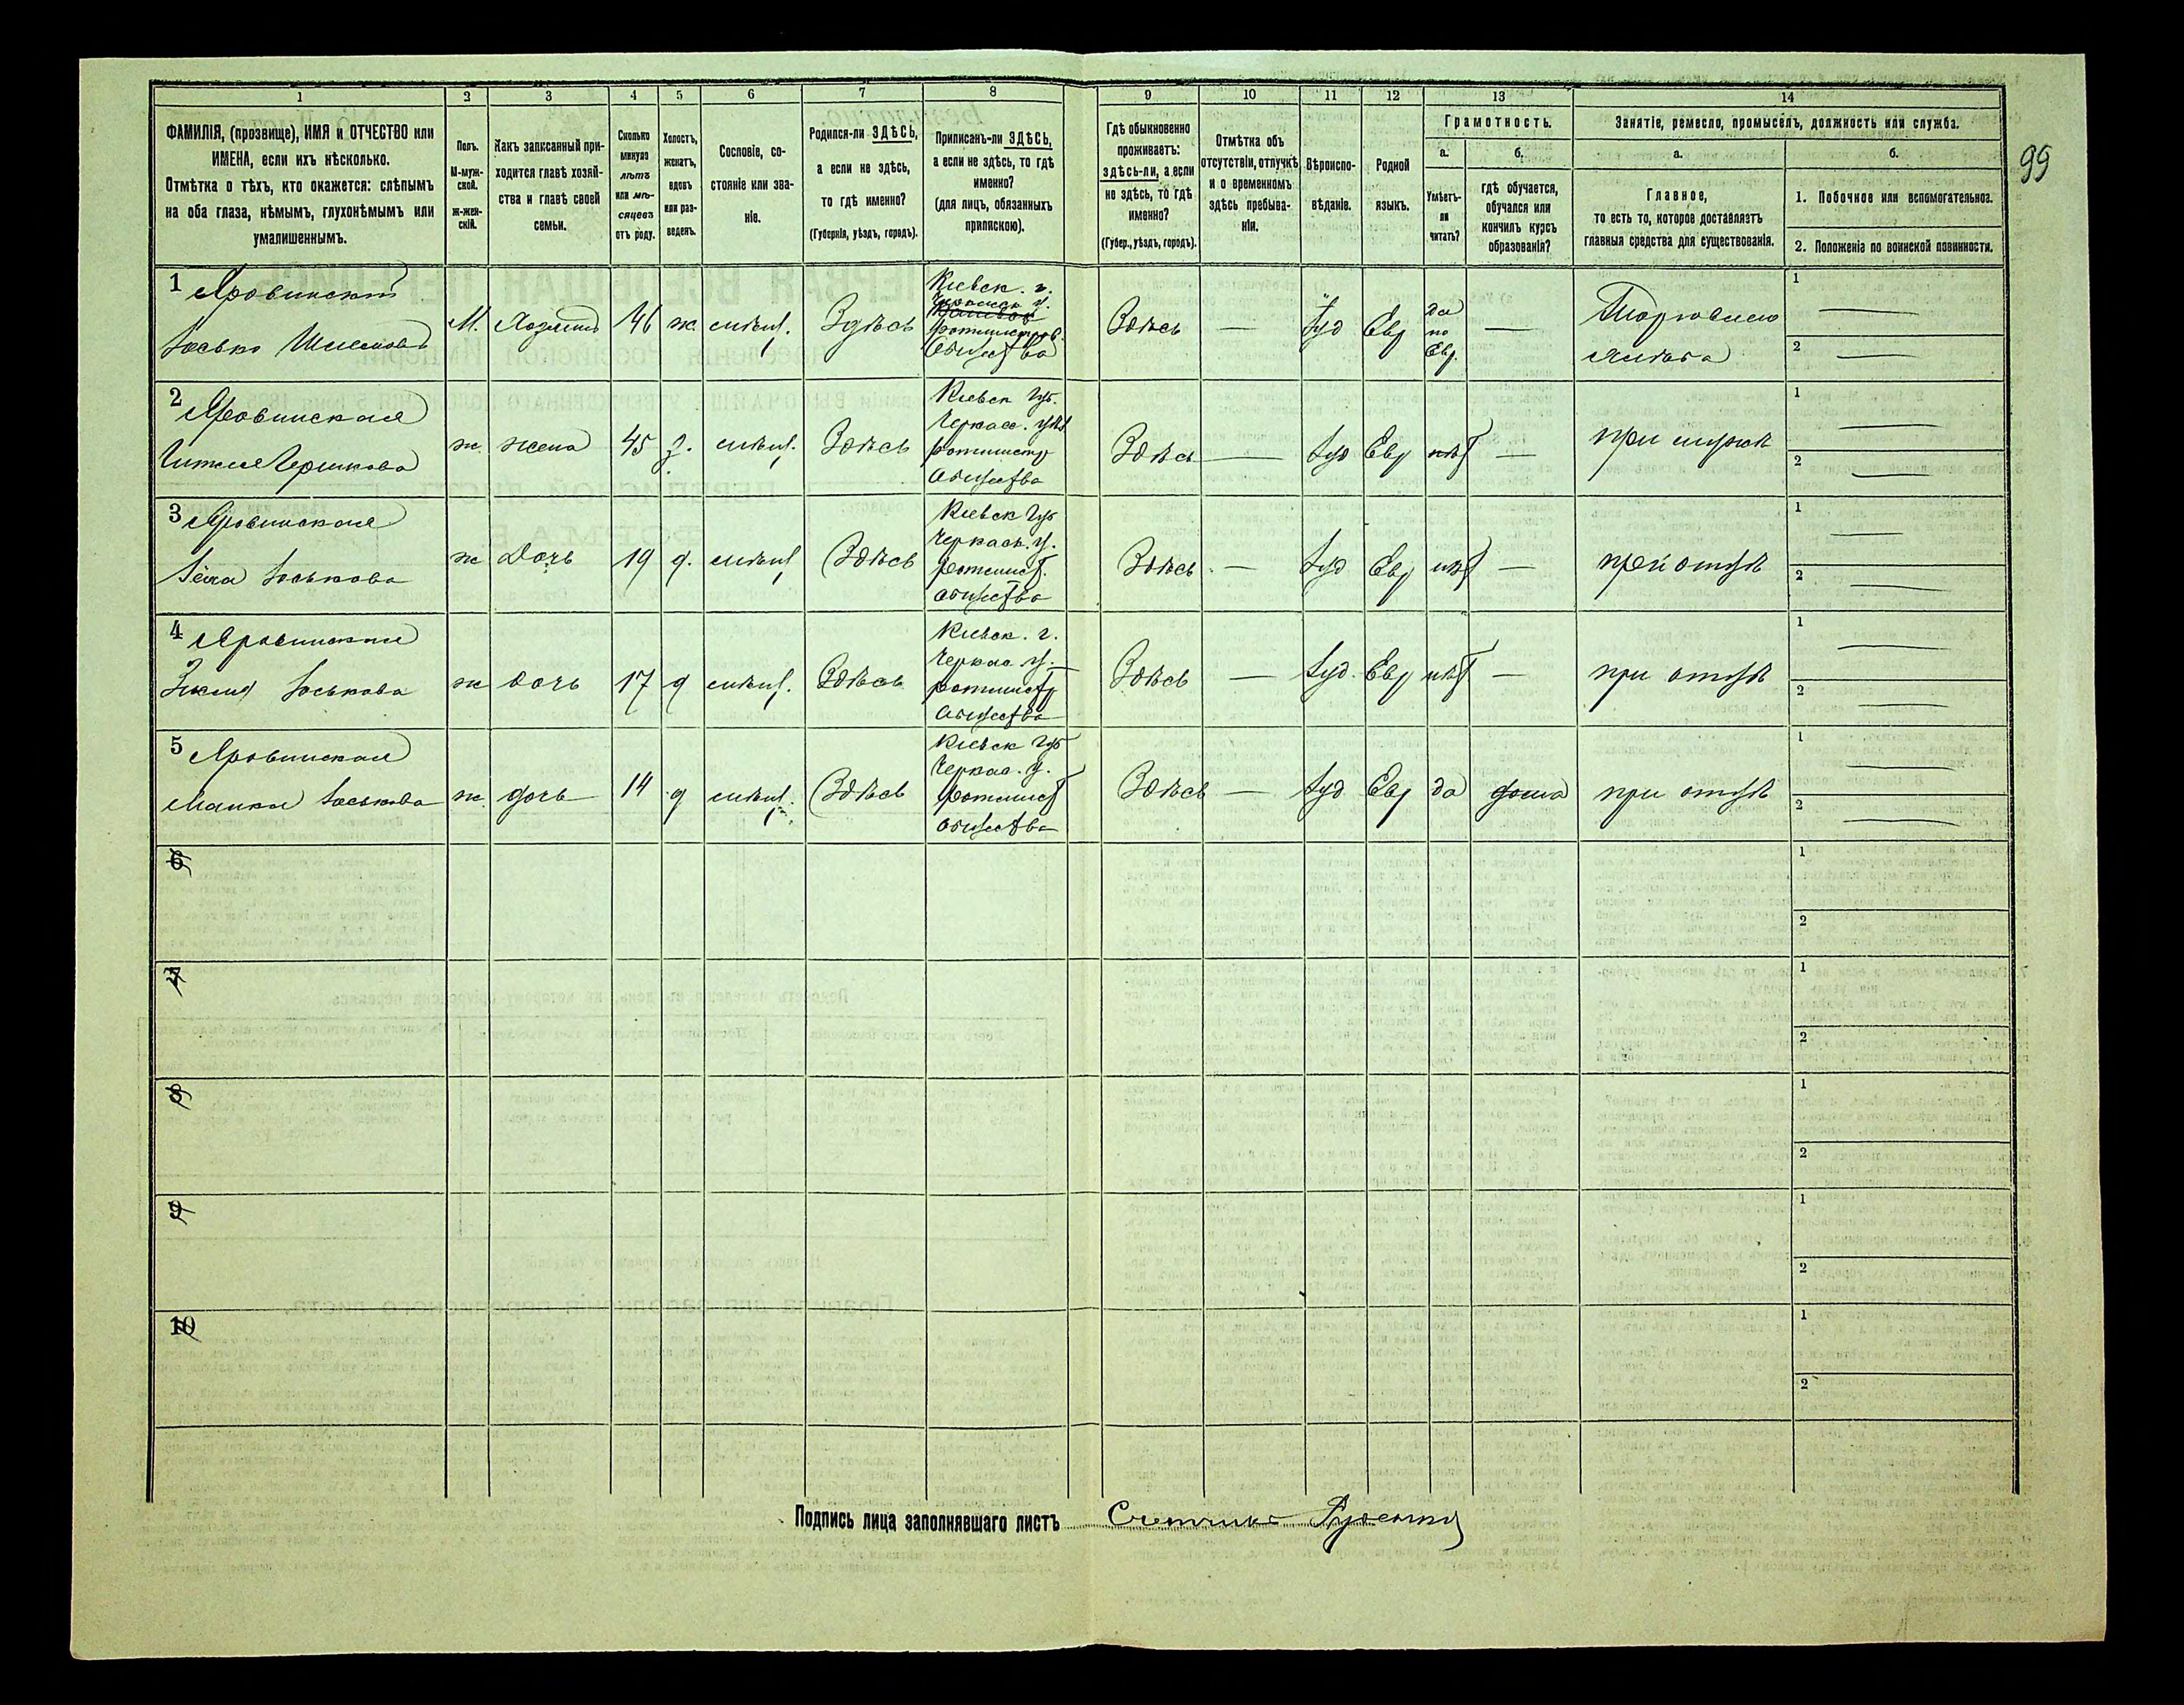 1
2
3
4
5
6
7
8
9
10
11
12
13
14
ФАМИЛІЯ, (прозвище), ИМЯ и ОТЧЕСТВО или
ИМЕНА, если ихъ нѣсколько.
Отмѣтка о тѣхъ, кто окажется: слѣпымъ
на оба глаза, нѣмымъ, глухонѣмымъ или
умалишеннымъ.
Полъ.
М-муж-
ской.
ж-жен-
скій.
Какъ записанный при-
ходится главѣ хозяй-
ства и главѣ своей
семьи.
Сколько
минуло
лѣтъ
или мѣ-
сяцевъ
отъ роду.
Холостъ,
женатъ,
вдовъ
или раз-
веденъ.
Сословіе, со-
стояніе или зва-
ніе.
Родился-ли ЗДѢСЬ,
а если не здѣсь,
то гдѣ именно?
(Губернія, уѣздъ, городъ).
Приписанъ-ли ЗДѢСЬ,
а если не здѣсь, то гдѣ
именно?
(для лицъ, обязанныхъ
припискою).
Гдѣ обыкновенно
проживаетъ:
здѣсь-ли, а если
не здѣсь, то гдѣ
именно?
(Губер., уѣздъ, городъ).
Отмѣтка объ
отсутствіи, отлучкѣ
и о временномъ
здѣсь пребыва-
ніи.
Вѣроиспо-
вѣданіе.
Родной
языкъ.
Грамотность.
а.
Умѣетъ-
ли
читать?
б.
гдѣ обучается,
обучался или
кончилъ курсъ
образованія?
Занятіе, ремесло, промыселъ, должность или служба.
а.
Главное,
то есть то, которое доставляетъ
главныя средства для существованія.
б.
1. Побочное или вспомогательное.
2. Положеніе по воинской повинности.
99
1 Яровинскій
Іосько Шлемовъ
М.
Хозяинъ
46
ж.
мѣщ.
Здѣсь
Кіевск. г.
Черкасск у.
ротмистров.
Общества
Здѣсь
—
Іуд
Евр
да
по
Евр.
—
Торговля
1
2
2 Яровинская
Гершкова
ж
жена
45
з.
мѣщ.
Здѣсь
Кіевск Губ.
Черкасс. уѣз.
ротмистр
Общества
Здѣсь
—
Іуд
Евр
нѣт
—
при мужѣ
1
2
3 Яровинская
Іоськова
ж
Дочь
19
д.
мѣщ
Здѣсь
Кіевск Губ
Черкасс. у.
ротмист.
Общества
Здѣсь
—
Іуд
Евр
нѣт
—
при отцѣ
1
2
4 Яровинская
Іоськова
ж
дочь
17
д
мѣщ.
Здѣсь
Кіевск. г.
Черкас у.
ротмистр
Общества
Здѣсь
—
Іуд.
Евр
нѣт
—
при отцѣ
1
2
5 Яровинская
Малка Іоськова
ж
дочь
14
д
мѣщ.
Здѣсь
Кіевск Губ
Черкас. у.
ротмист
Общества
Здѣсь
—
Іуд
Евр
да
дома
при отцѣ
1
2
6
1
2
7
1
2
8
1
2
9
1
2
10
1
2
Подпись лица заполнявшаго листъ Счетчикъ